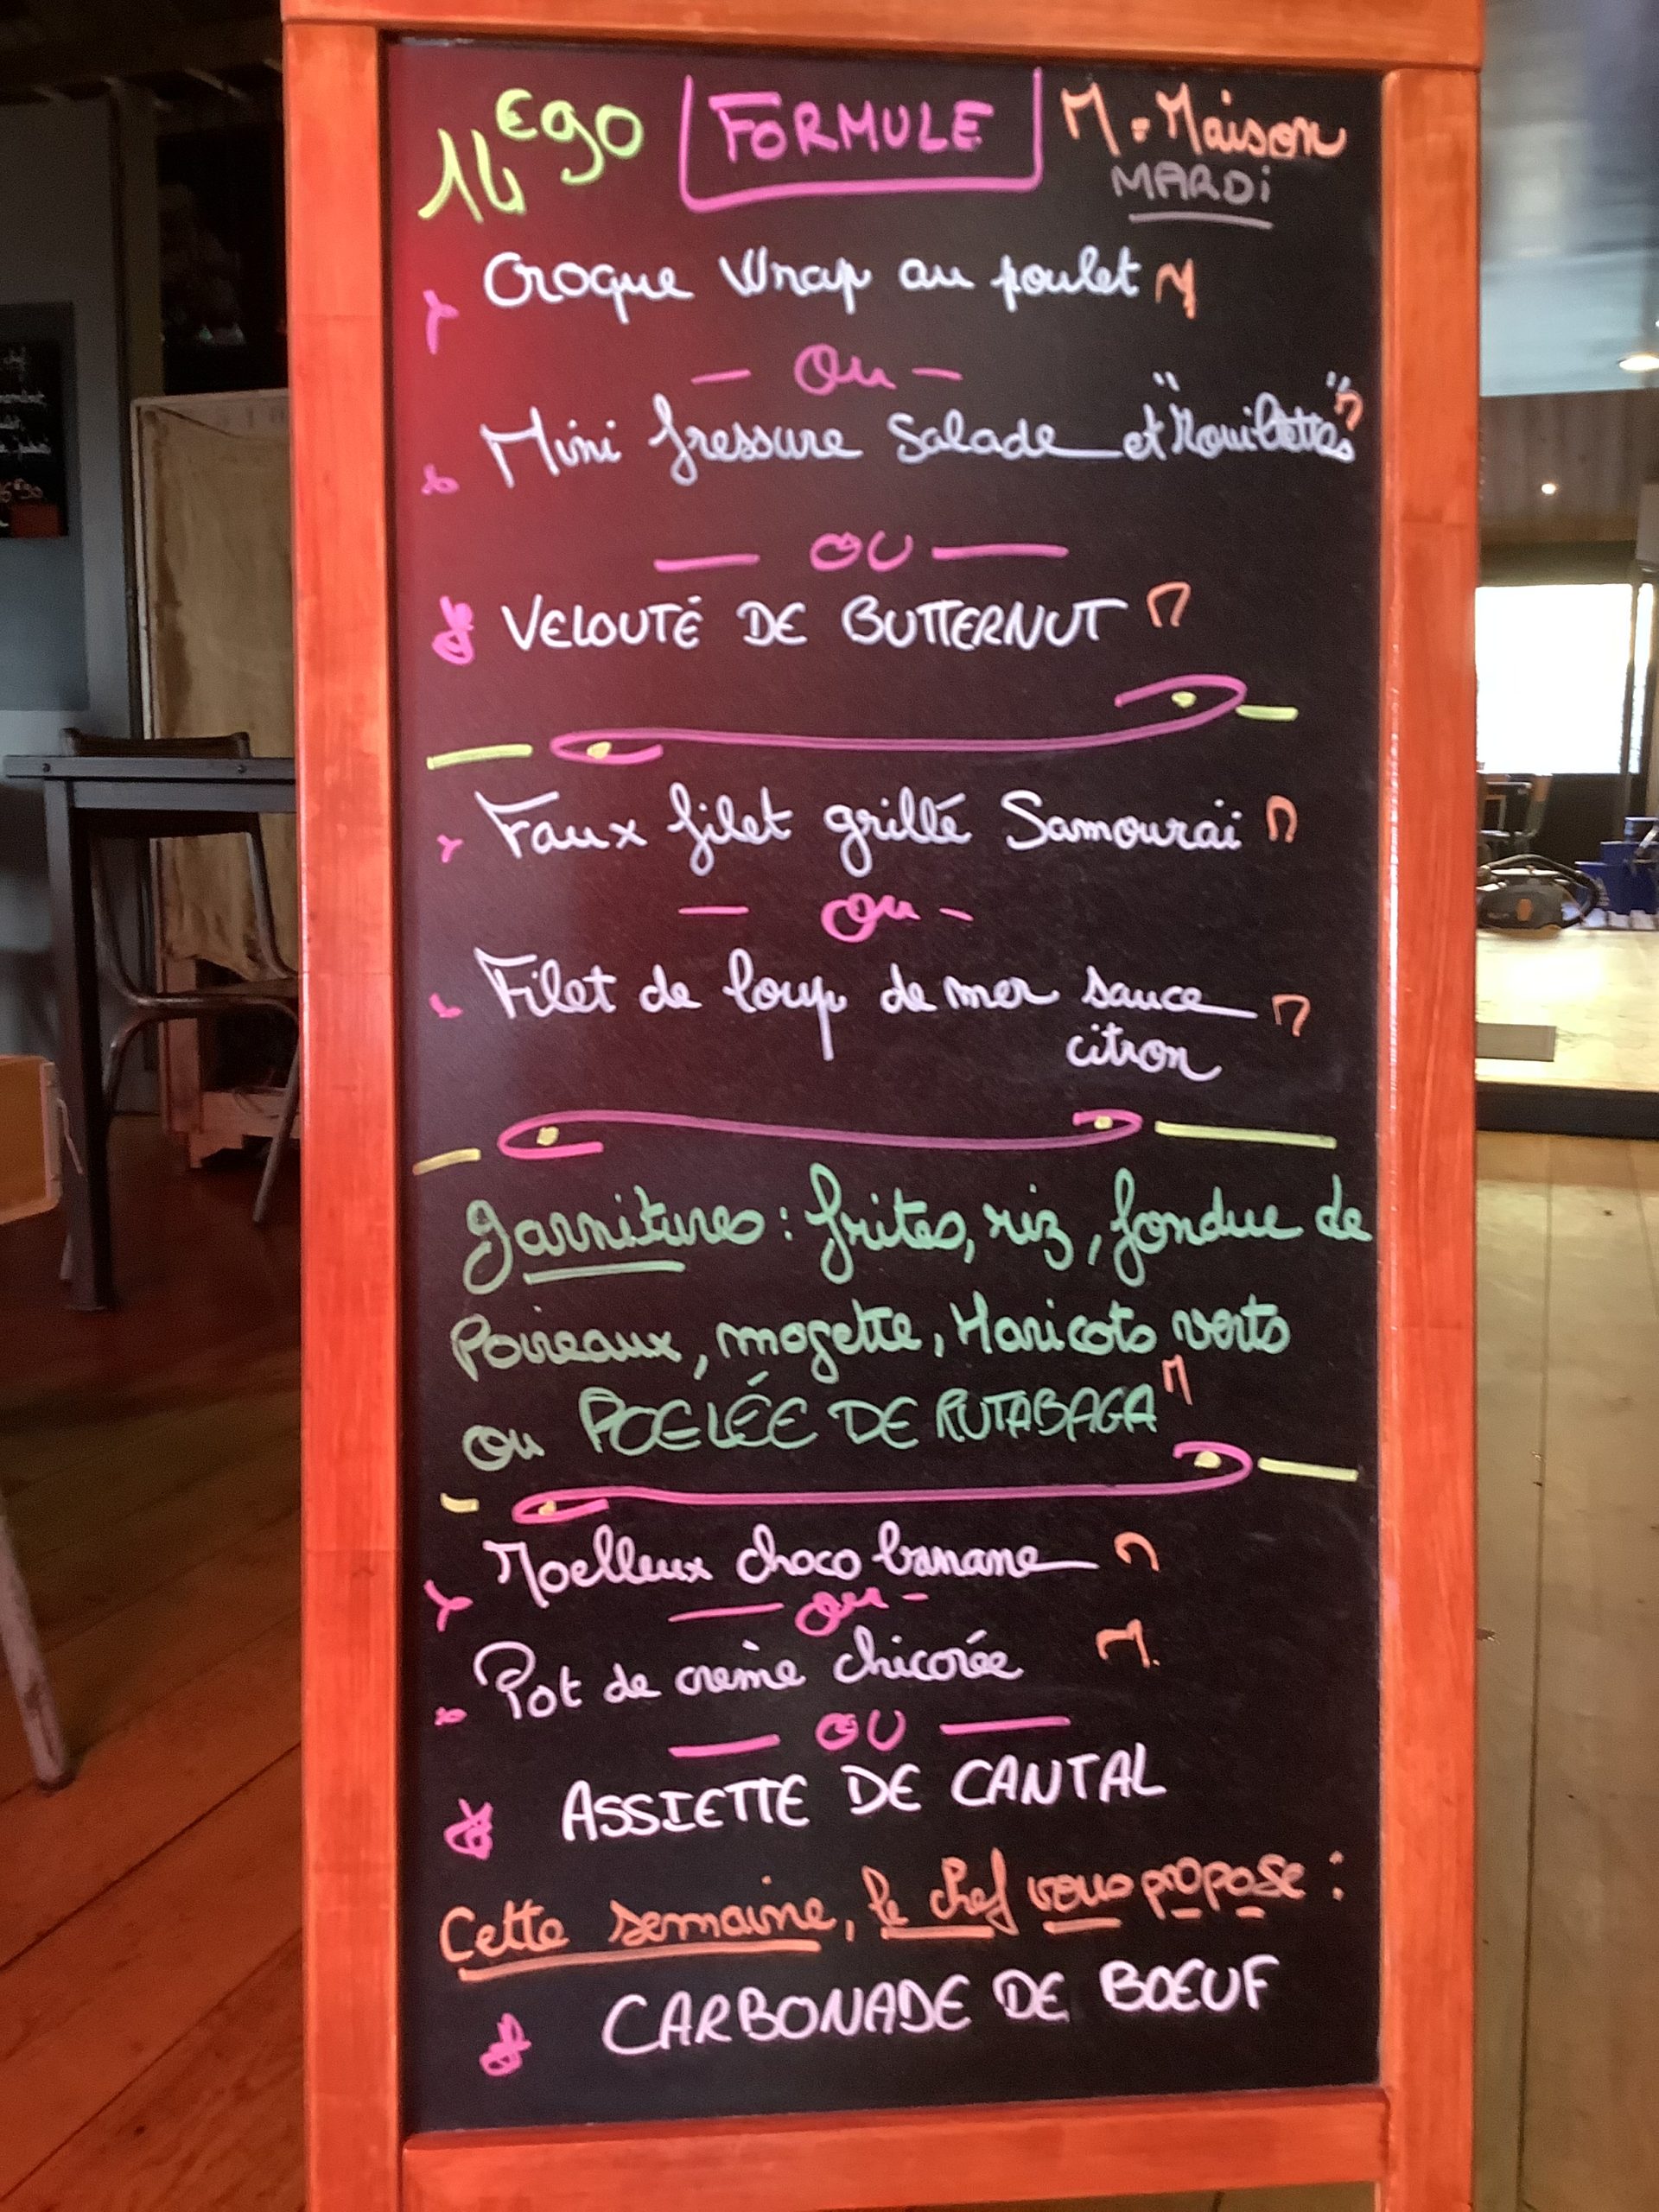 14€90 FORMULE M = Maison
MARDI
Croque Wrap au poulet M
- Ou -
Mini fressure Salade et "Mouillettes" M
- OU -
VELOUTÉ DE BUTTERNUT M
Faux filet grillé Samourai M
- Ou -
Filet de loup de mer sauce M
citron
Garnitures : frites, riz, fondue de
Poireaux, mogette, Haricots verts
ou POELÉE DE RUTABAGA M
Moelleux choco banane M
- ou -
Pot de crème chicorée M.
- OU -
ASSIETTE DE CANTAL
Cette semaine, le chef vous propose :
CARBONADE DE BOEUF